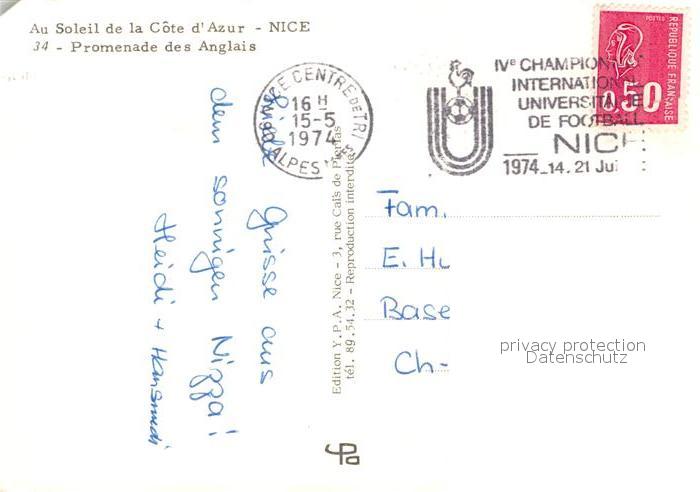 Au Soleil de la Côte d'Azur - NICE
34 - Promenade des Anglais
NICE CENTRE DE TRI
16 H
15-5
1974
ALPES
IVe CHAMPION
INTERNATION
UNIVERSITAIRE
DE FOOTBALL
NICE
1974_14.21 Jui
POSTES
REPUBLIQUE FRANÇAISE
0,50
Grüsse aus
dem sonnigen Nizza!
Heidi + Hansruedi
Edition Y.P.A. Nice - 3, rue Caïs de Pierlas
tél. 89.54.32 - Reproduction interdite
Fam.
E. Hu
Base
Ch-
privacy protection
Datenschutz